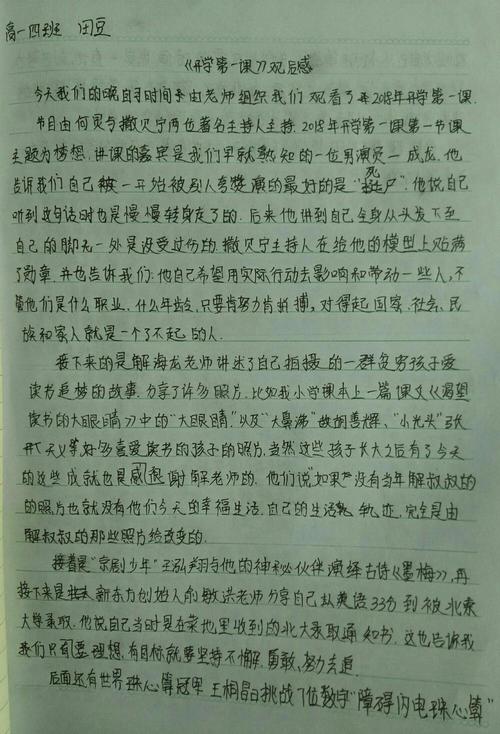 高一四班 田豆
《开学第一课》观后感
今天我们的晚自习时间由老师组织我们观看了2018年开学第一课.
节目由何炅与撒贝宁两位著名主持人主持.2018年开学第一课第一节课
主题为梦想.讲课的嘉宾是我们早就熟知的一位男演员—成龙.他
告诉我们自己一开始被别人夸赞演的最好的是"死尸".他说自己
听到这句话时也是慢慢转身走了的.后来他讲到自己全身从头发下至
自己的脚无一处是没受过伤的.撒贝宁主持人在给他的模型上贴满
了勋章.并也告诉我们:他自己希望用实际行动去影响和带动一些人,不
管他们是什么职业,什么年龄,只要肯努力肯拼搏,对得起国家.社会、民
族和家人就是一个了不起的人.
接下来的是解海龙老师讲述了自己拍摄的一群贫穷孩子爱
读书追梦的故事.分享了许多照片.比如我小学课本上一篇课文《渴望
读书的大眼睛》中的"大眼睛"以及"大鼻涕"胡善辉、"小光头"张
天义等好多喜爱读书的孩子的照片.当然这些孩子长大之后有了今天
的这些成就也是感谢解老师的.他们说如果没有当年解叔叔的
的照片也就没有他们今天的幸福生活.自己的生活轨迹.完全是由
解叔叔的那些照片给改变的.
接着是"京剧少年"王泓翔与他的神秘伙伴演绎古诗《墨梅》,再
接下来是新东方创始人俞敏洪老师分享自己从英语33分到被北京
大学录取.他说自己当时是在菜地里收到的北大录取通知书.这也告诉我
我们只要理想,有目标就要坚持不懈.勇敢、努力去追.
后面还有世界珠心算冠军王相晶挑战7位数字"障碍闪电珠心算"